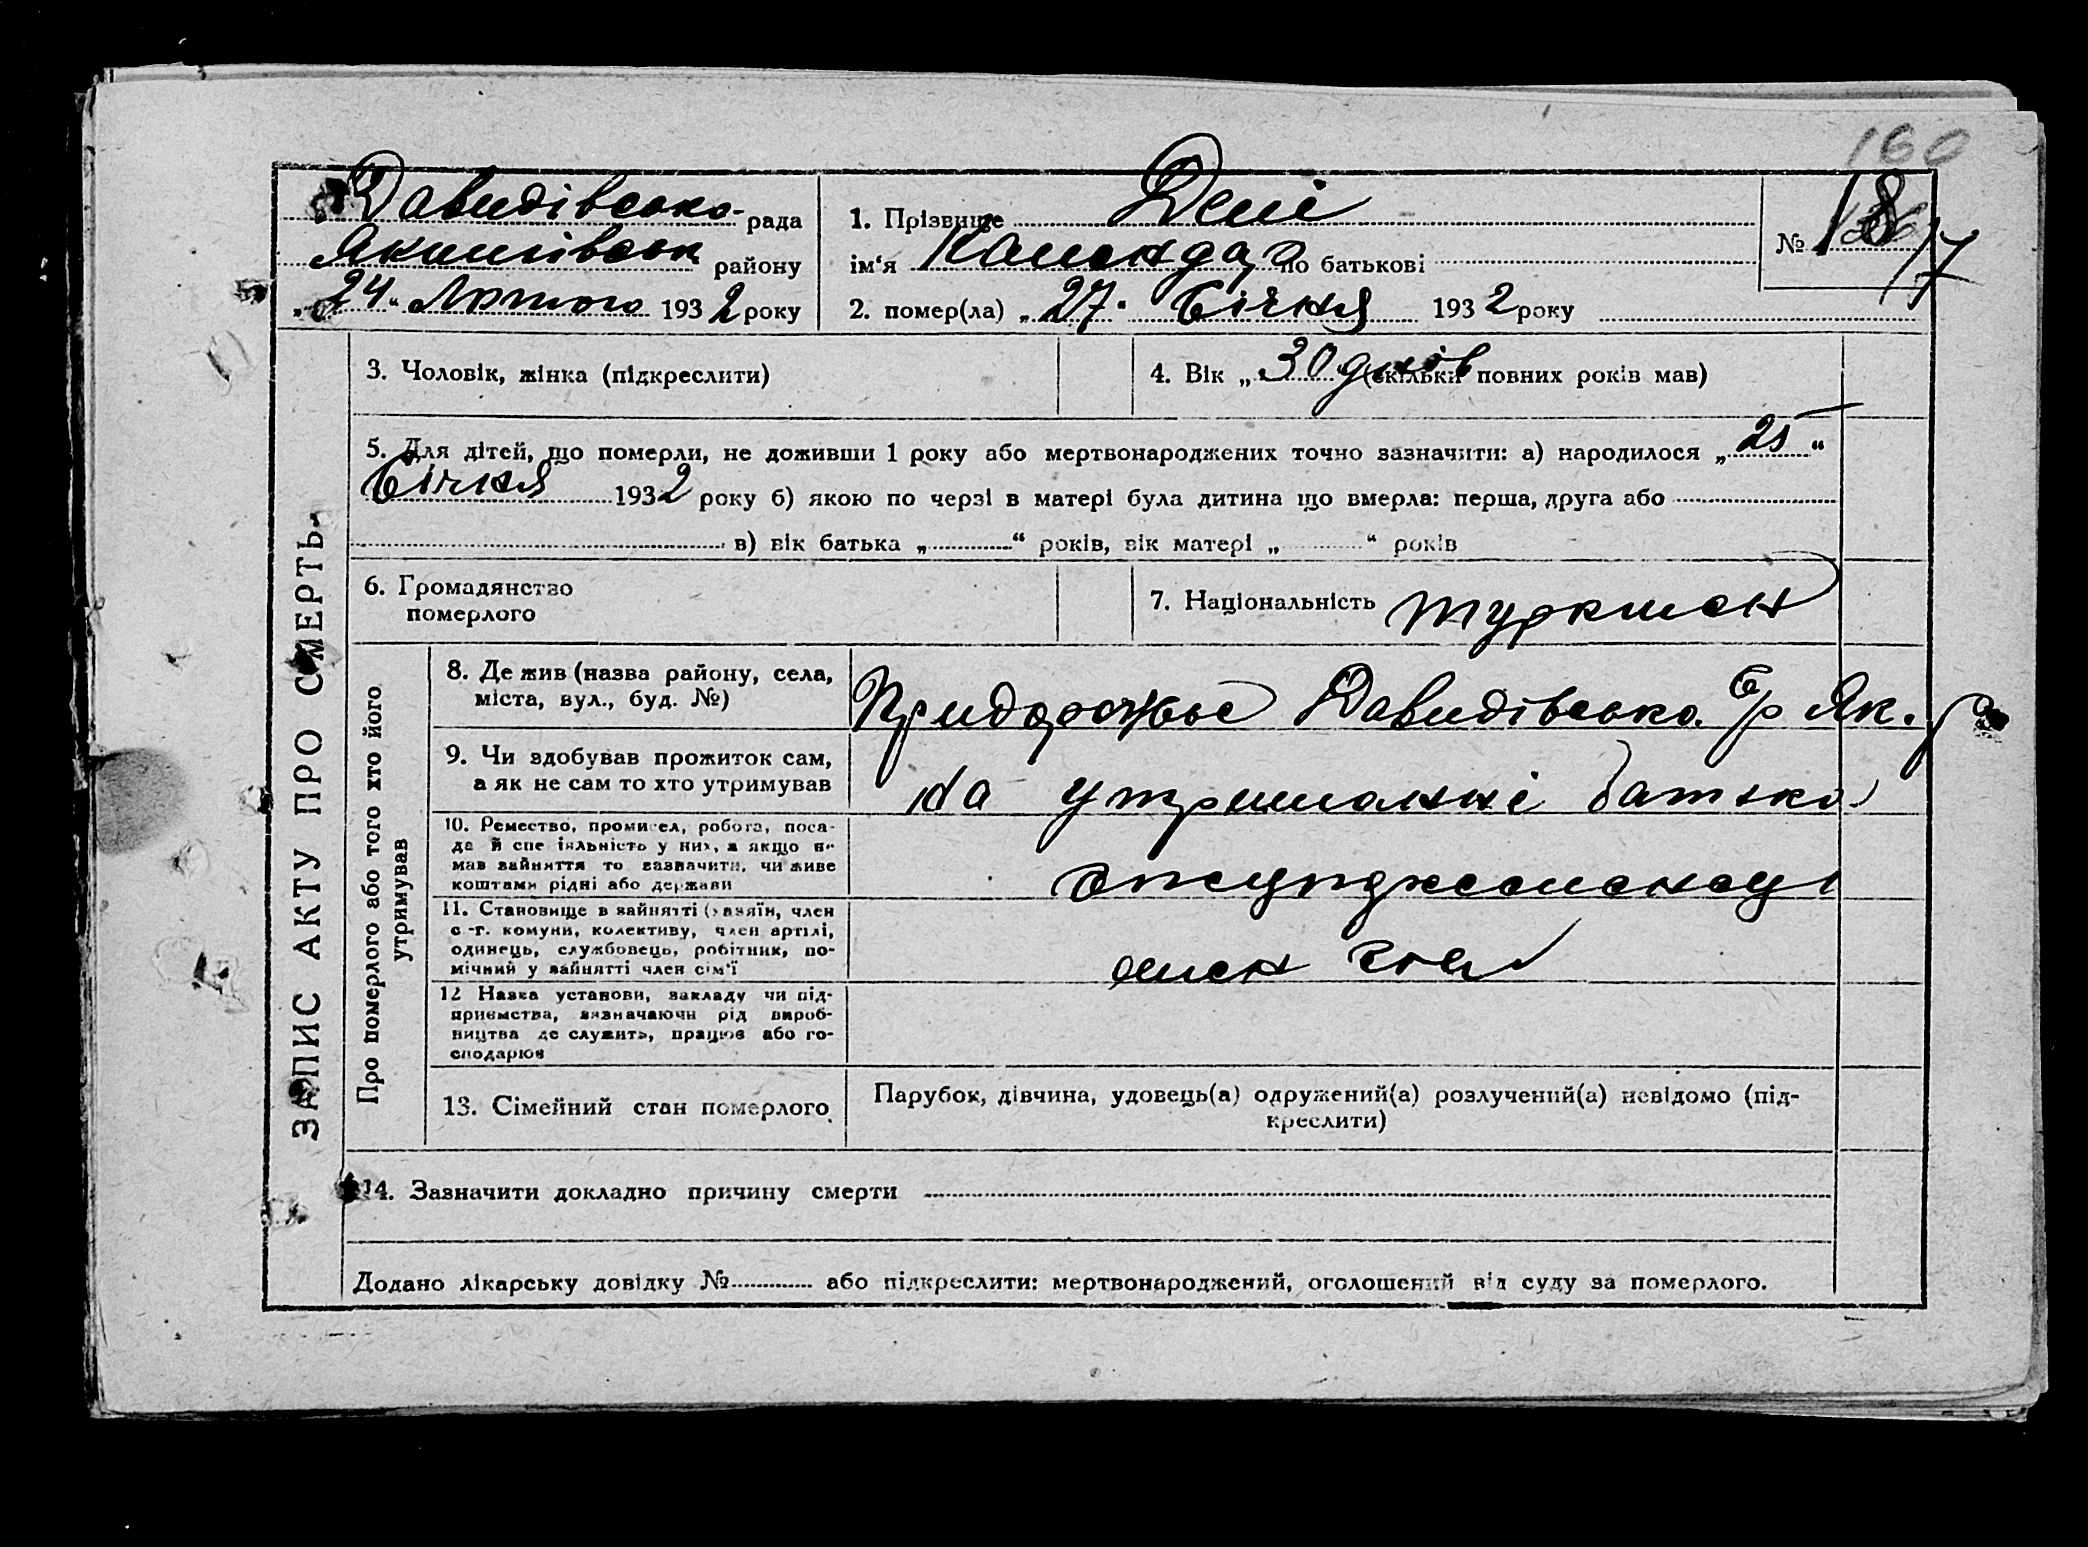 160
Давидівсько рада
Якимівськ району
„24“ Лютого 1932 року
1. Прізвище Делі
ім‘я по батькові
2. помер(ла) „27“ Січня 1932 року
№ 18/7
ЗАПИС АКТУ ПРО СМЕРТЬ.
3. Чоловік, жінка (підкреслити)
4. Вік „30 днів“ (скільки повних років мав)
5. Для дітей, що померли, не доживши 1 року або мертвонароджених точно зазначити: а) народилося „25“
Січня 1932 року б) якою по черзі в матері була дитина що вмерла: перша, друга або
в) вік батька „ “ років, вік матері „ “ років
6. Громадянство
померлого
7. Національність туркмен
Про померлого або того хто його
утримував
8. Де жив (назва району, села,
міста, вул., буд. №)
Придорожье Давидівсько. С/р Як. р
9. Чи здобував прожиток сам,
а як не сам то хто утримував
на утриманні батька
10. Ремество, промисел, робота, поса-
да й спеціяльність у них, а якщо не
мав зайняття то зазначити, чи живе
коштами рідні або держави
11. Становище в зайнятті (хазяїн, член
с.-г. комуни, колективу, член артілі,
одинець, службовець, робітник, по-
мічний у зайнятті член сім‘ї
член
12 Назва установи, закладу чи під-
приємства, зазначаючи рід вироб-
ництва де служить, працює або го-
сподарює
13. Сімейний стан померлого
Парубок, дівчина, удовець(а) одружений(а) розлучений(а) невідомо (під-
креслити)
14. Зазначити докладно причину смерти
Додано лікарську довідку № або підкреслити: мертвонароджений, оголошений від суду за померлого.